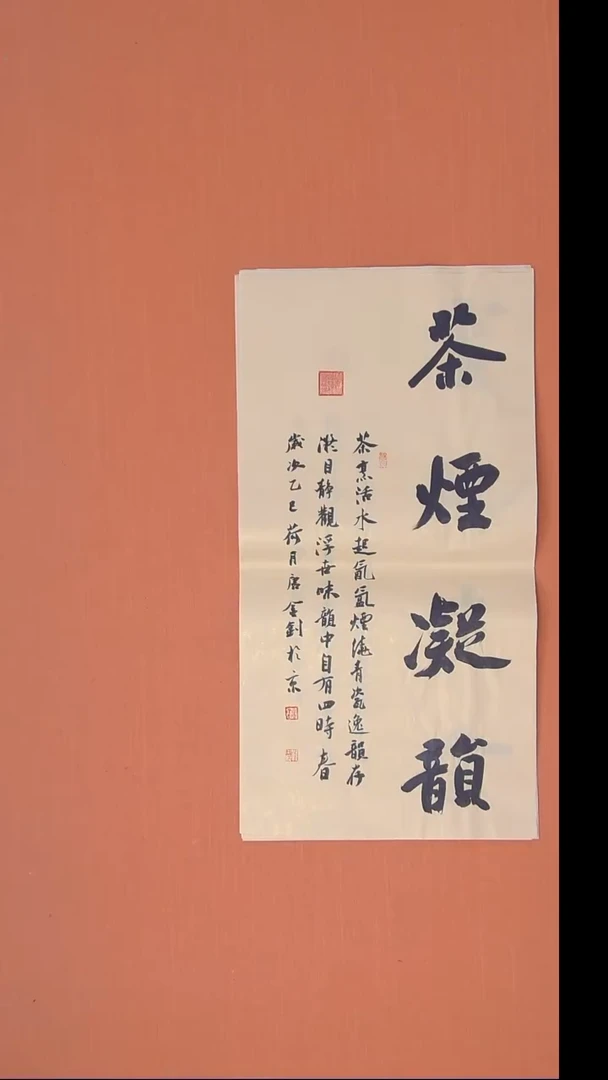 茶煙凝韻
茶烹活水起氤氳煙淹青瓷逸韻存
凝目靜觀浮世味韻中自有四時春
歲次乙巳荷月唐金釗於京